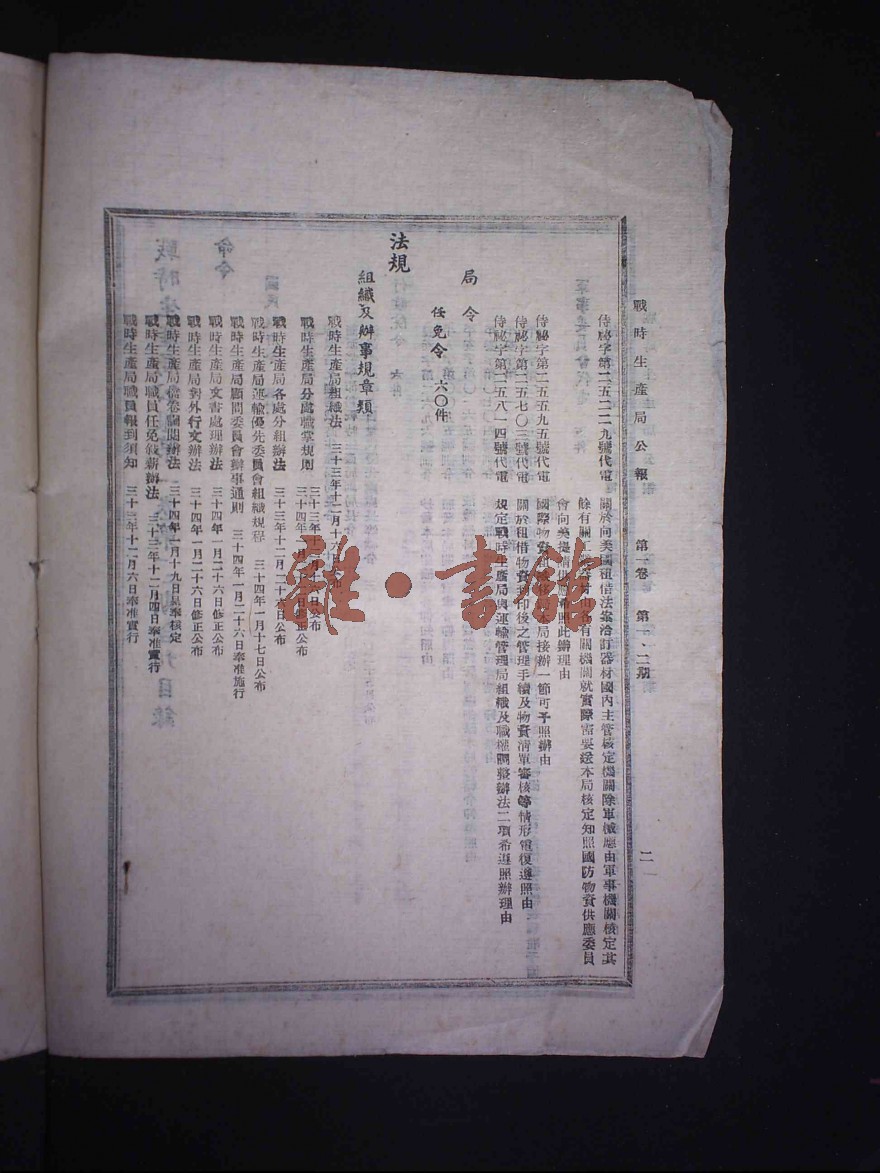 戰時生產局公報　第一卷　第一、二期　二
侍祕字第二五二二九號代電　關於向美國租借法案洽訂器材國內主管核定機關除軍械應由軍事機關核定其
餘有關工　器材由各有關機關就實際需要送本局核定知照國防物資供應委員
會向美提請　希照此辦理由
侍祕字第二五五九五號代電　國際物資　本局接辦一節可予照辦由
侍祕字第二五七〇三號代電　關於租借物資到印後之管理手續及物資清單審核等情形電復遵照由
侍祕字第二五八一四號代電　規定戰時生產局與運輸管理局組織及職權調整辦法二項希遵照辦理由
局令
任免令　六〇件
法規
組織及辦事規章類
戰時生產局組織法　三十三年十二月十六日公布
戰時生產局分處職掌規則　三十三年十二月十六日公布
三十四年一月二十六日修正公布
戰時生產局各處分組辦法　三十三年十二月二十六日公布
戰時生產局運輸優先委員會組織規程　三十四年一月十七日公布
戰時生產局顧問委員會辦事通則　三十四年一月二十六日奉准施行
戰時生產局文書處理辦法　三十四年一月二十六日修正公布
戰時生產局對外行文辦法　三十四年一月二十六日修正公布
戰時生產局檔卷調閱辦法　三十四年一月十九日呈奉核定
戰時生產局職員任免敘薪辦法　三十三年十二月四日奉准實行
戰時生產局職員報到須知　三十三年十二月六日奉准實行
雜·書館